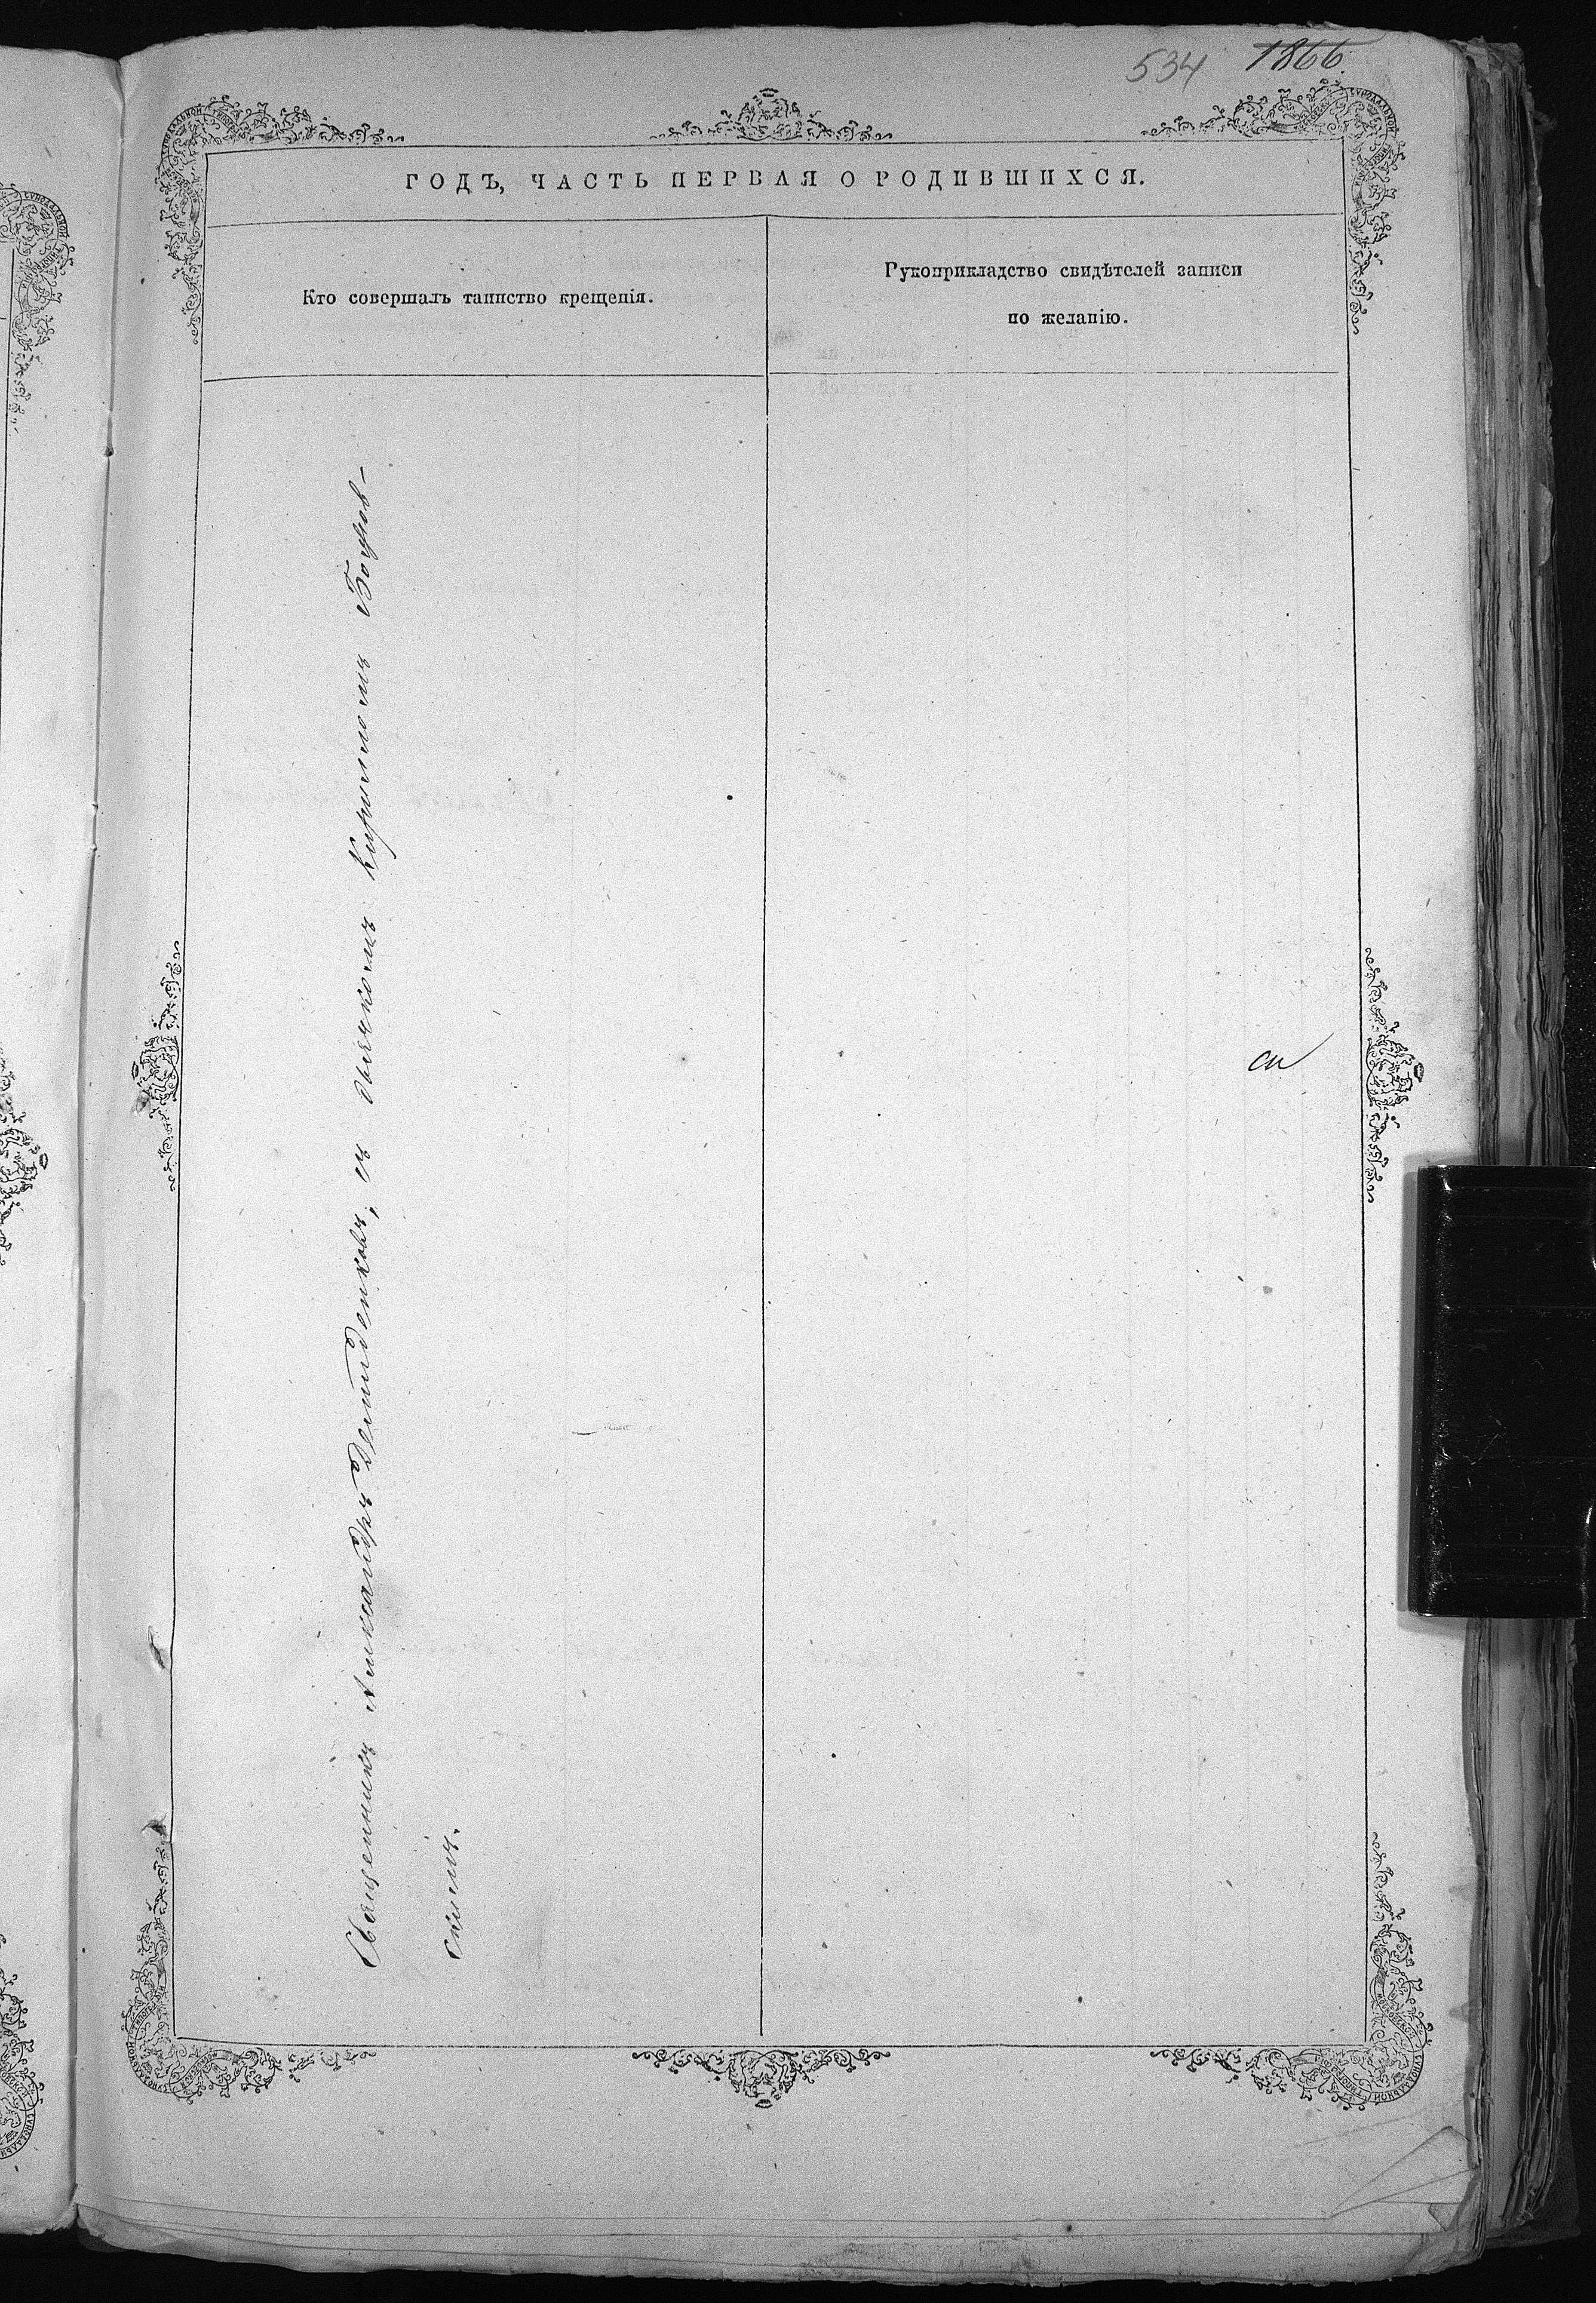 534 1866
ГОДЪ, ЧАСТЬ ПЕРВАЯ О РОДИВШИХСЯ.
Кто совершалъ таинство крещенія.
Рукоприкладство свидѣтелей записи
по желанію.
Священникъ Александръ Демиденковъ, съ дьячкомъ Кирилломъ
скимъ.